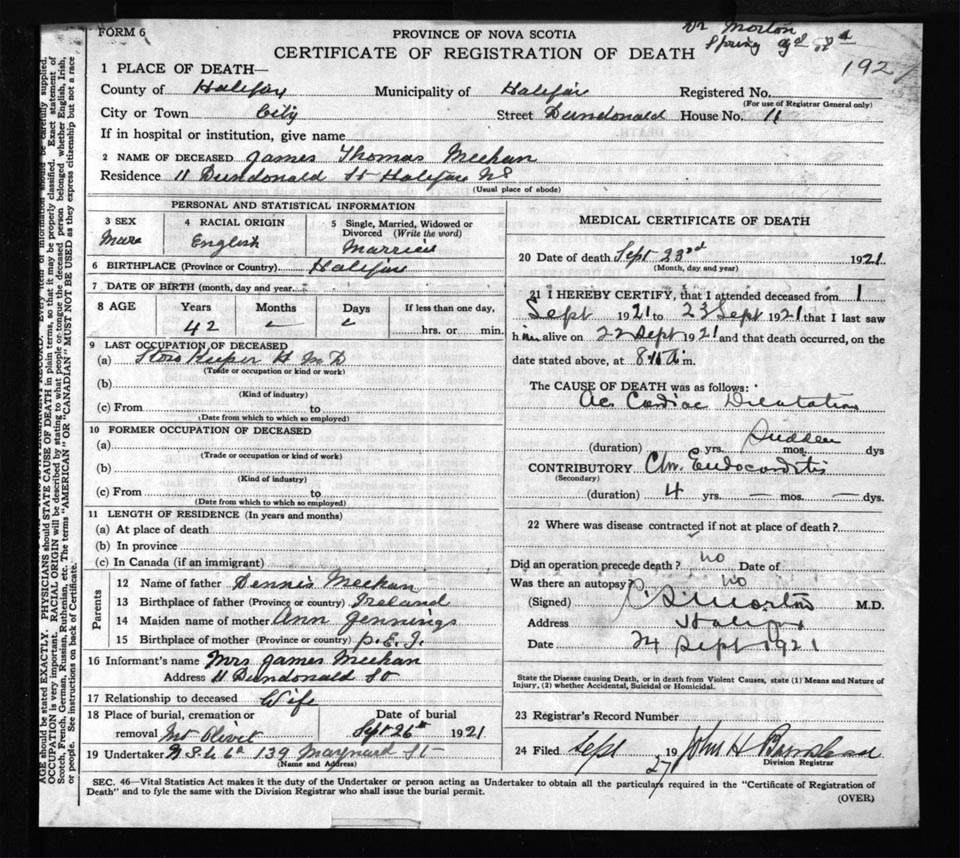 FORM 6
PROVINCE OF NOVA SCOTIA
Dr Morton
Spring
CERTIFICATE OF REGISTRATION OF DEATH
192
1 PLACE OF DEATH—
County of Halifax Municipality of Halifax Registered No.
(For use of Registrar General only)
City or Town City Street Dundonald House No. 11
If in hospital or institution, give name
2 NAME OF DECEASED James Thomas Meehan
Residence 11 Dundonald St Halifax NS
(Usual place of abode)
PERSONAL AND STATISTICAL INFORMATION
3 SEX
Male
4 RACIAL ORIGIN
English
5 Single, Married, Widowed or
Divorced (Write the word)
Married
6 BIRTHPLACE (Province or Country) Halifax
7 DATE OF BIRTH (month, day and year)
8 AGE
Years
42
Months
–
Days
If less than one day,
hrs. or min.
9 LAST OCCUPATION OF DECEASED
(a) Store Keeper H M D
(Trade or occupation or kind or work)
(b)
(Kind of industry)
(c) From to
(Date from which to which so employed)
10 FORMER OCCUPATION OF DECEASED
(a)
(Trade or occupation or kind of work)
(b)
(Kind of industry)
(c) From to
(Date from which to which so employed)
11 LENGTH OF RESIDENCE (In years and months)
(a) At place of death
(b) In province
(c) In Canada (if an immigrant)
Parents
12 Name of father Dennis Meehan
13 Birthplace of father (Province or country) Ireland
14 Maiden name of mother Ann Jennings
15 Birthplace of mother (Province or country) P.E.I.
16 Informant's name Mrs James Meehan
Address 11 Dundonald St
17 Relationship to deceased Wife
18 Place of burial, cremation or
removal Mt Olivet
Date of burial
Sept 26th 1921
19 Undertaker 139 Maynard St
(Name and Address)
MEDICAL CERTIFICATE OF DEATH
20 Date of death Sept 23rd 1921
(Month, day and year)
21 I HEREBY CERTIFY, that I attended deceased from 1
Sept 1921 to 23 Sept 1921 that I last saw
him alive on 22 Sept 1921 and that death occurred, on the
date stated above, at m.
The CAUSE OF DEATH was as follows:
Ac Cardiac Dilatation
Sudden
(duration) yrs. mos. dys
CONTRIBUTORY Chr. Endocarditis
(Secondary)
(duration) 4 yrs. — mos. — dys.
22 Where was disease contracted if not at place of death?
Did an operation precede death? no Date of
Was there an autopsy? no
(Signed) Morton M.D.
Address Halifax
Date 24 Sept 1921
State the Disease causing Death, or in death from Violent Causes, state (1) Means and Nature of
Injury, (2) whether Accidental, Suicidal or Homicidal.
23 Registrar's Record Number
24 Filed Sept 27 19 John H
Division Registrar
SEC. 46—Vital Statistics Act makes it the duty of the Undertaker or person acting as Undertaker to obtain all the particulars required in the "Certificate of Registration of
Death" and to fyle the same with the Division Registrar who shall issue the burial permit.
(OVER)
AGE should be stated EXACTLY. PHYSICIANS should STATE CAUSE OF DEATH in plain terms, so that it may be properly classified. Exact statement of
OCCUPATION is very important. RACIAL ORIGIN will be described by stating to what people or tongue the deceased person belonged whether English, Irish,
Scotch, French, German, Russian, Ruthenian, etc. The terms "AMERICAN" OR "CANADIAN" MUST NOT BE USED as they express citizenship but not a race
or people. See instructions on back of Certificate.